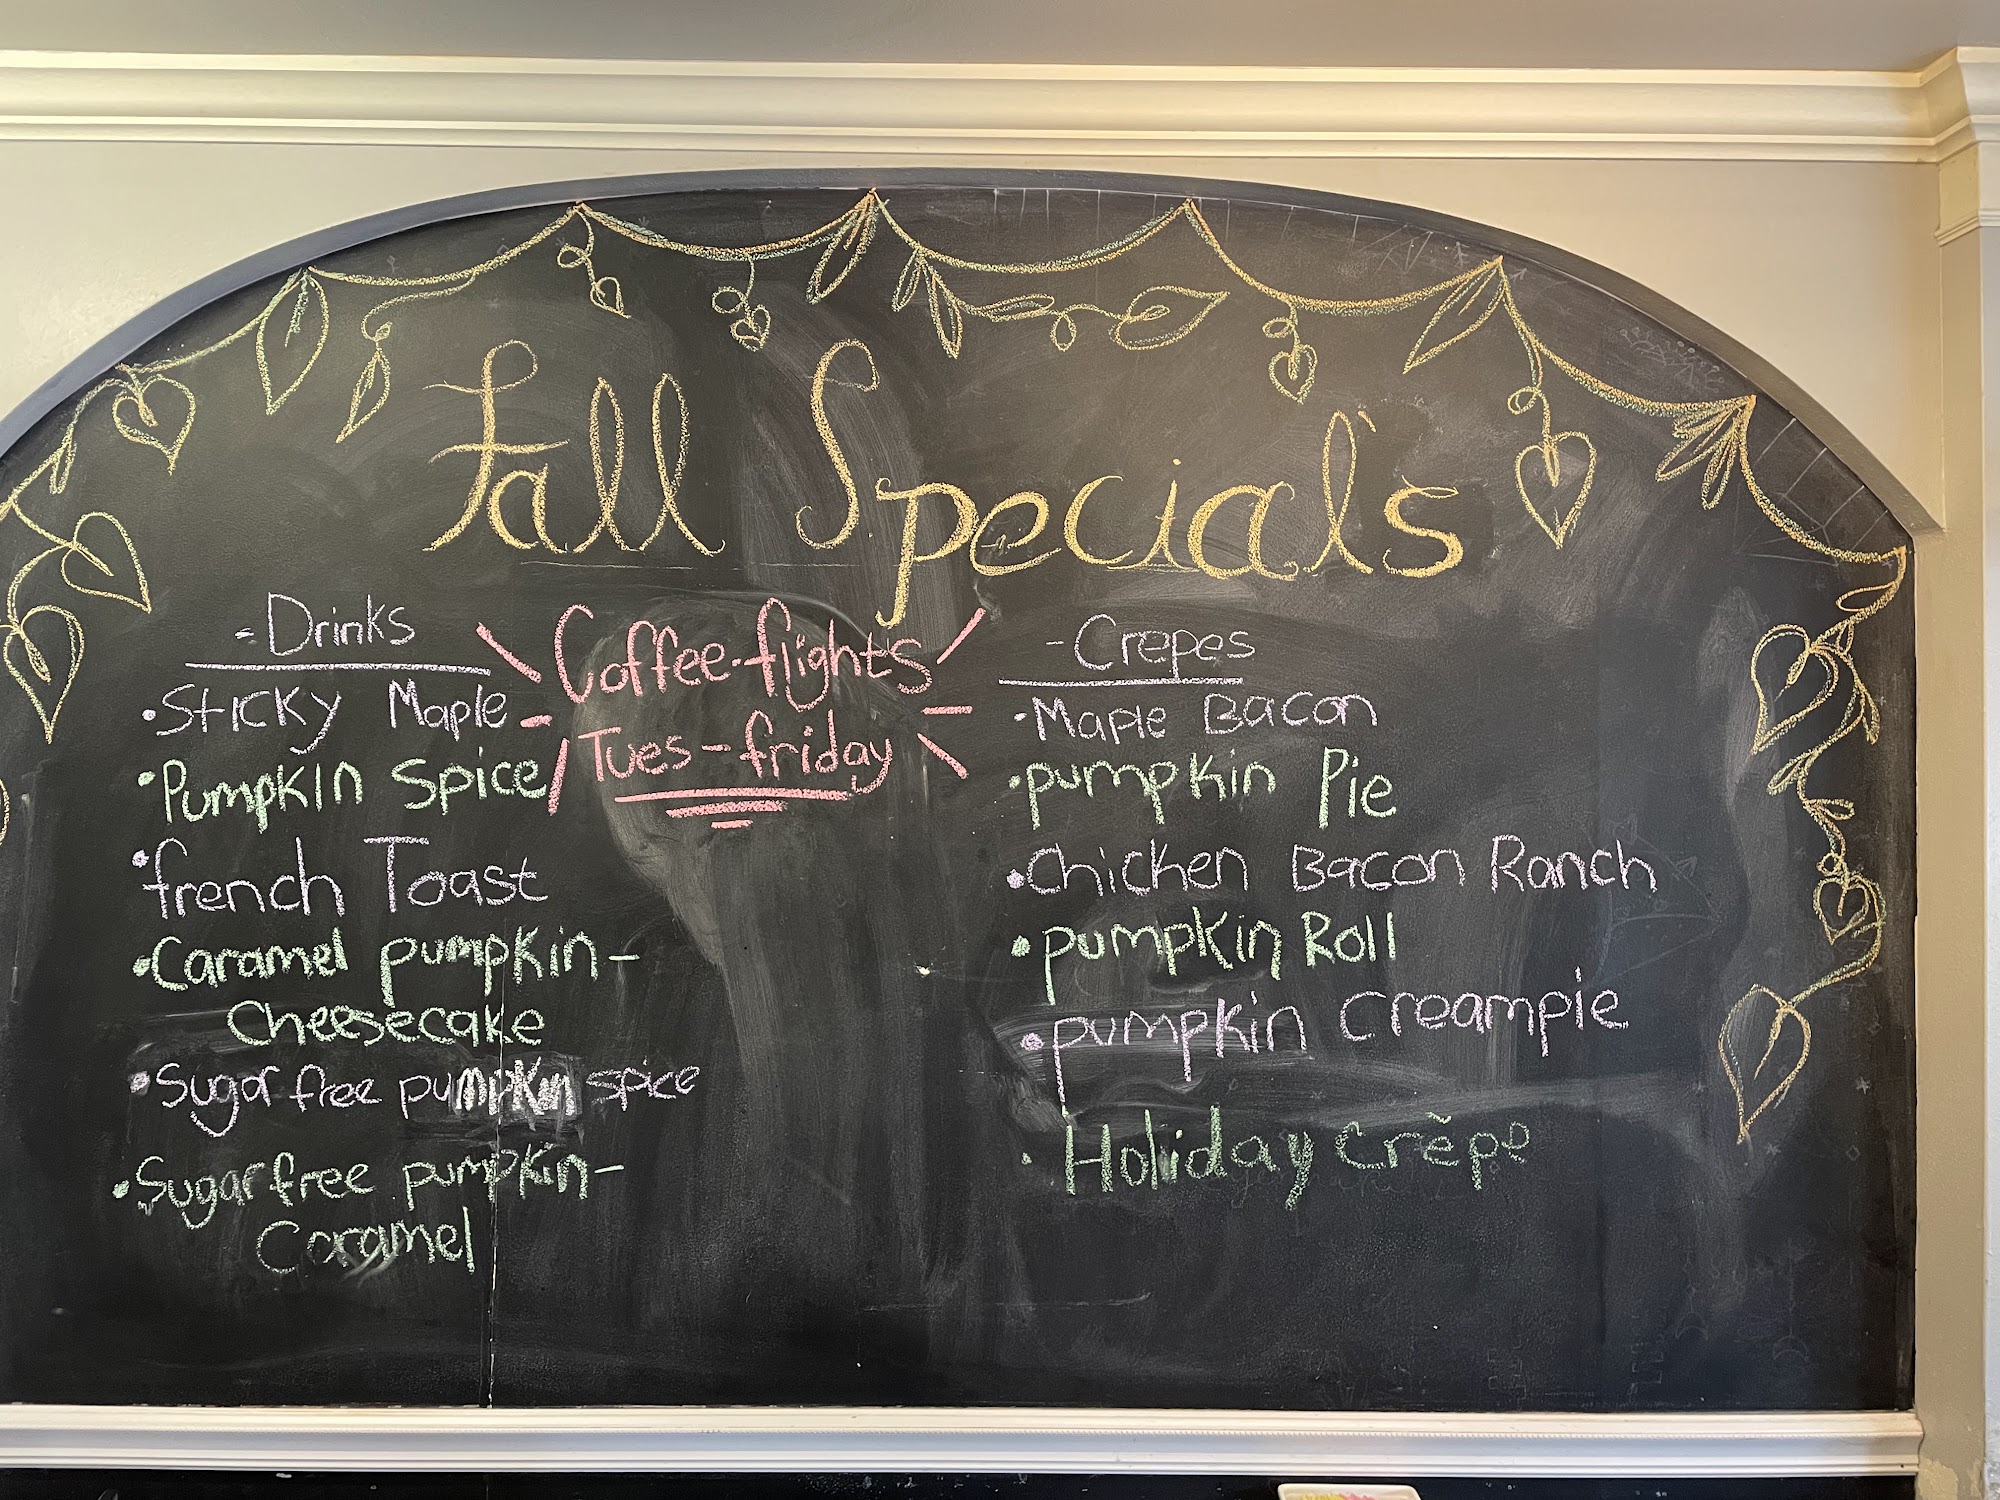 Fall Special's
- Drinks
• Sticky Maple
• Pumpkin Spice
• french Toast
• Caramel pumpkin-
Cheesecake
• Sugar free pumpkin spice
• Sugar free pumpkin-
Caramel
Coffee flights
Tues-friday
- Crepes
• Maple Bacon
• pumpkin Pie
• Chicken Bacon Ranch
• pumpkin Roll
• pumpkin creampie
• Holiday Crĕpe